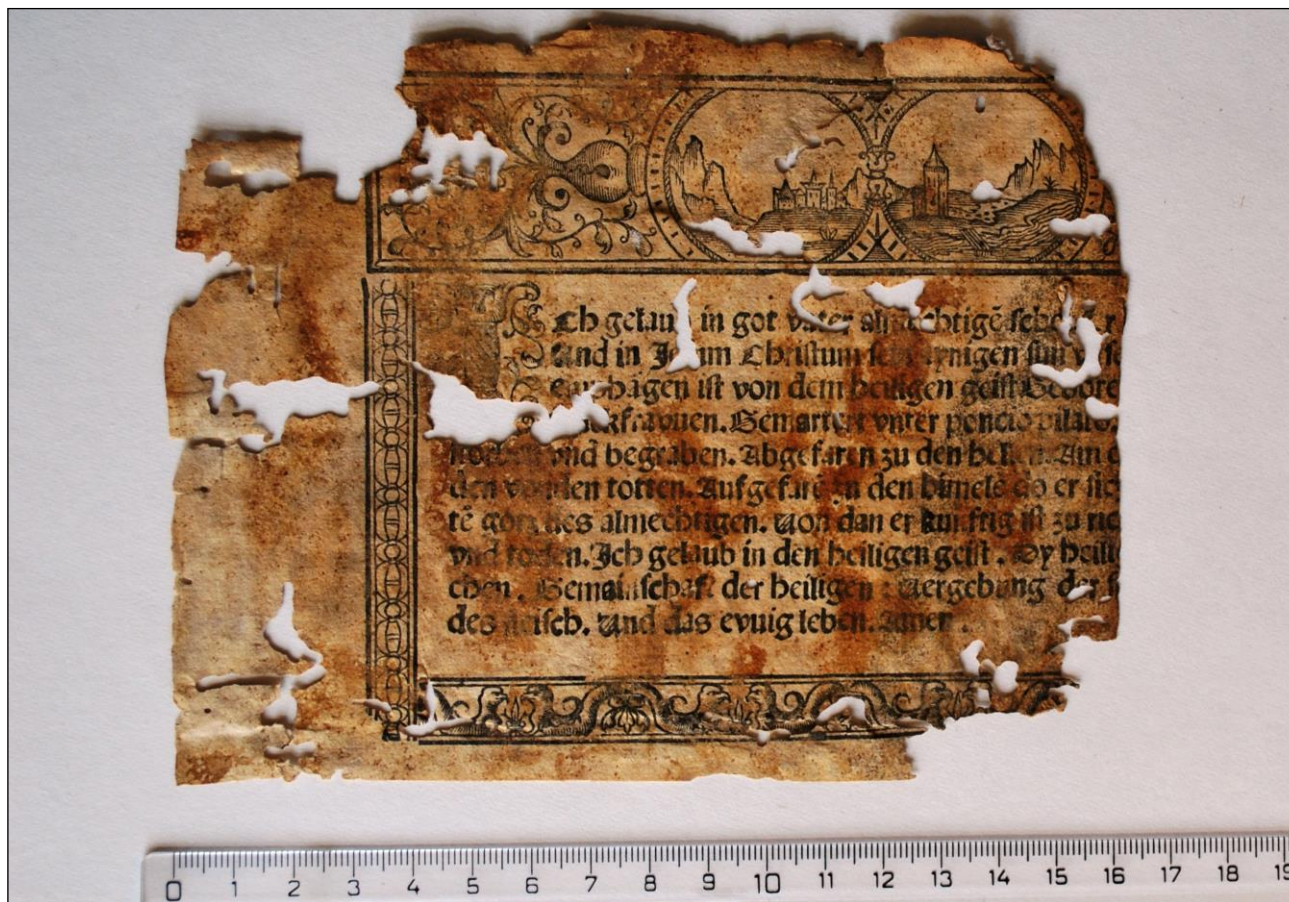 Ich gelaub in got vater almechtigē
Und in Jesum Christum ynigen sun
ist von dem heiligen geist Gebore
Gemartert vnter poncio pilato.
vnd begraben. Abgefaren zu den hellen. Am
den von den totten. Aufgefarē zu den himels do er
tē gottes almechtigen. Von dan er kunftig ist zu
vnd totten. Ich gelaub in den heiligen geist. Dy heili
chen. Gemainschaft der heiligen: Vergebung der
des fleisch. Und das evuig leben. Amen.
0 1 2 3 4 5 6 7 8 9 10 11 12 13 14 15 16 17 18 19